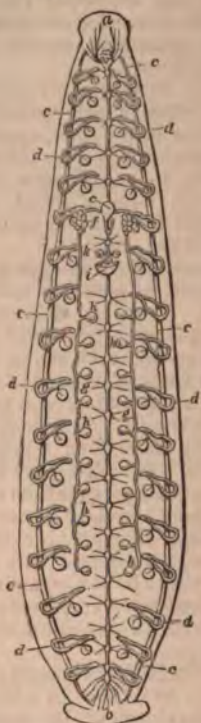 a
c
c
d
d
e
f
k
i
c
c
h
d
d
g
g
h
h
h
c
d
d
c
b